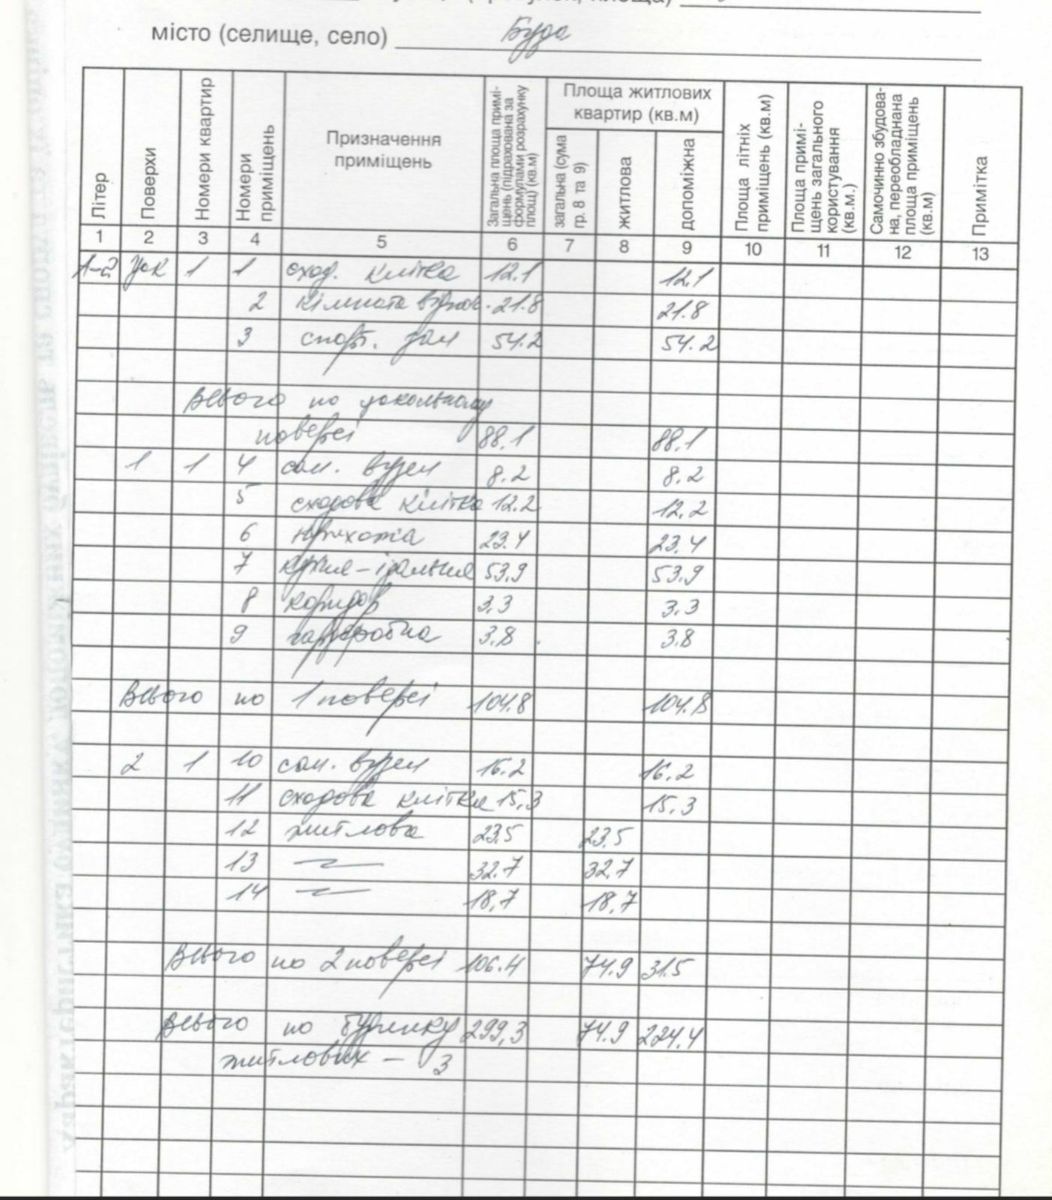 місто (селище, село) Буда
Літер
Поверхи
Номери квартир
Номери приміщень
Призначення приміщень
Загальна площа приміщень (підрахована за формулами розрахунку площ) (кв.м)
Площа житлових квартир (кв.м)
загальна (сума гр. 8 та 9)
житлова
допоміжна
Площа літніх приміщень (кв.м)
Площа приміщень загального користування (кв.м.)
Самочинно збудована, переобладнана площа приміщень (кв.м)
Примітка
1 2 3 4 5 6 7 8 9 10 11 12 13
1-а цок 1 1 сход. клітка 12.1 12.1
2 кімната 21.8 21.8
3 спорт. зал 54.2 54.2
Всього по цокольному
поверсі 88.1 88.1
1 1 4 сан. вузел 8.2 8.2
5 сходова клітка 12.2 12.2
6 прихожа 23.4 23.4
7 кухня-їдальня 53,9 53,9
8 коридор 3,3 3,3
9 гардеробна 3,8 3.8
Всього по 1 поверсі 104.8 104.8
2 1 10 сан. вузел 16.2 16.2
11 сходова клітка 15,3 15,3
12 житлова 23,5 23,5
13 32.7 32.7
14 18,7 18,7
Всього по 2 поверсі 106.4 74.9 31.5
Всього по будинку 299,3 74.9 224.4
житлових - 3